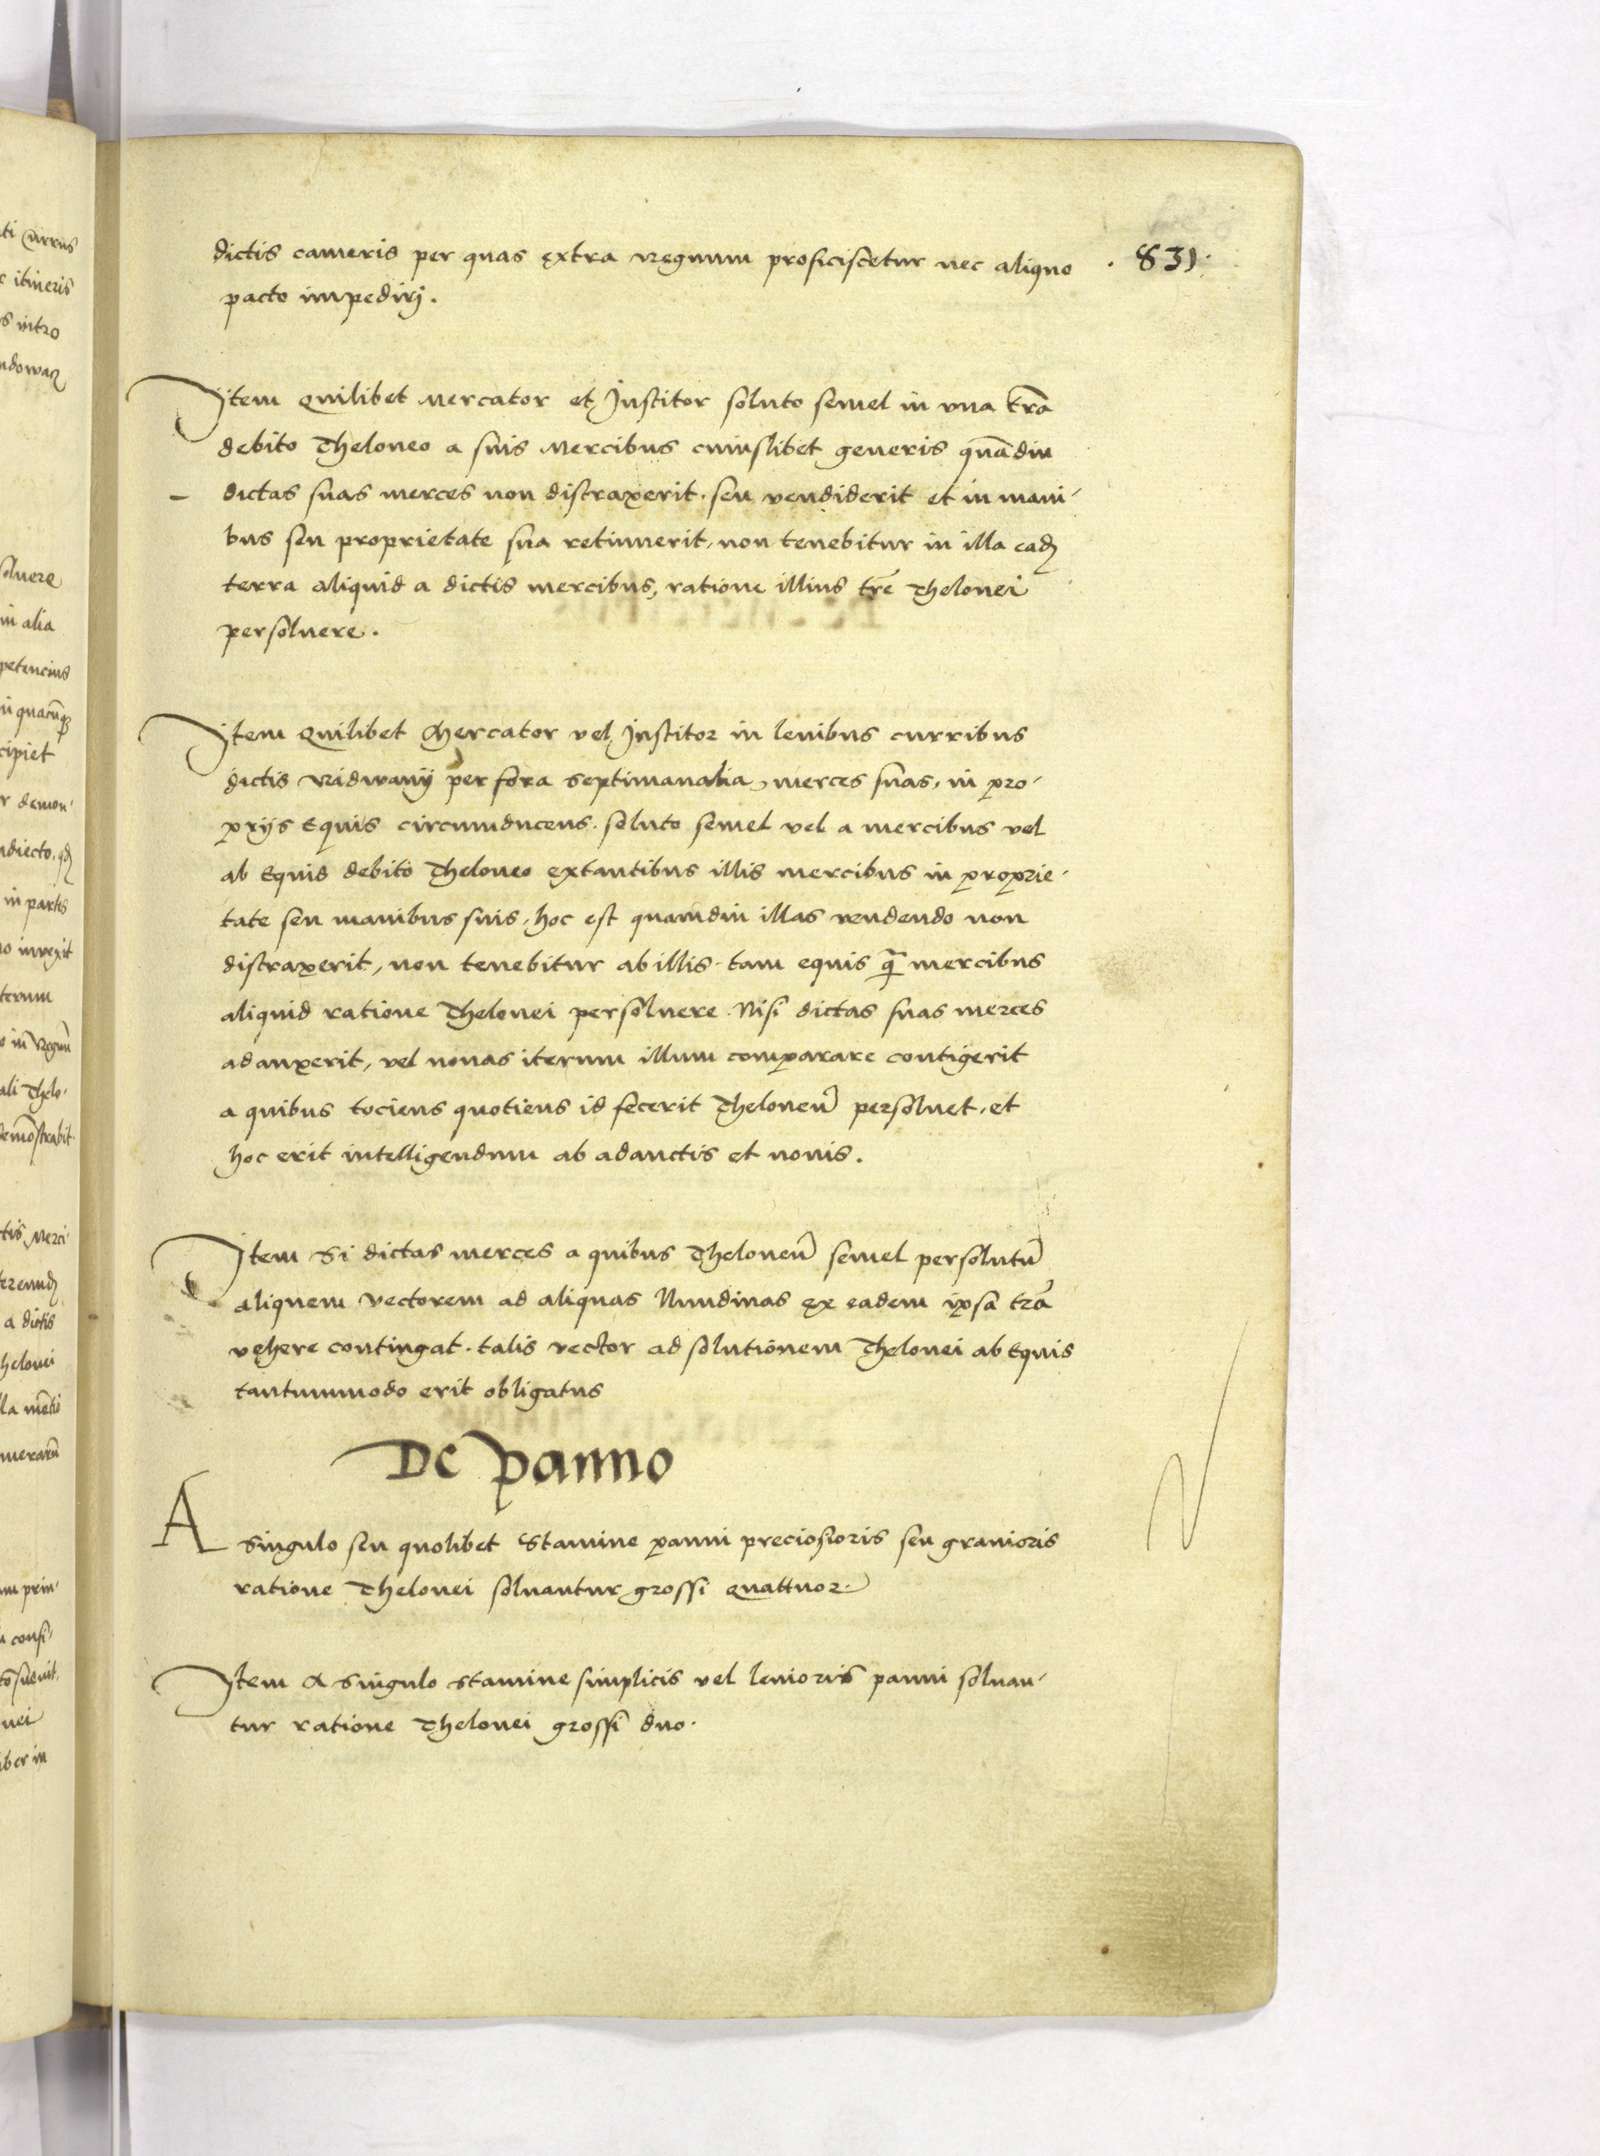 dictis cameris per quas extra Regnum proficiscetur nec aliquo · 831 ·
pacto impediri.
Item Quilibet Mercator et Institor soluto semel in vna tra͞
debito Theloneo a suis Mercibus cuiuslibet generis qua͞diu
dictas suas merces non distraxerit. seu vendiderit et in mani-
bus seu proprietate sua retinuerit, non tenebitur in illa ead͞
terra aliquid a dictis mercibus, ratione illius tre͞ Thelonei
persoluere.
Item Quilibet Mercator vel Institor in leuibus curribus
dictis Ridwanÿ per fora septimanalia, merces suas, in pro-
prijs Equis circumducens. soluto semel vel a mercibus vel
ab Equis debito Theloneo extantibus illis mercibus in proprie-
tate seu manibus suis, hoc est quamdiu illas vendendo non
distraxerit, non tenebitur ab illis tam equis q͞ mercibus
aliquid ratione Thelonei persoluere. Nisi dictas suas merces
adauxerit, vel nouas iterum illum comparare contigerit
a quibus tociens quotiens id fecerit Theloneu͞ persoluet, et
hoc erit intelligendum ab adauctis et nouis.
Item Si dictas merces a quibus Theloneu͞ semel persolutu͞
aliquem vectorem ad aliquas Nundinas ex eadem ipsa tra͞
vehere contingat. talis vector ad solutionem Thelonei ab Equis
tantummodo erit obligatus
De panno
A singulo seu quolibet Stamine panni preciosioris seu grauioris
ratione Thelonei soluantur grossi quattuor.
Item A singulo stamine simplicis vel leuioris panni soluan-
tur ratione Thelonei grossi duo.